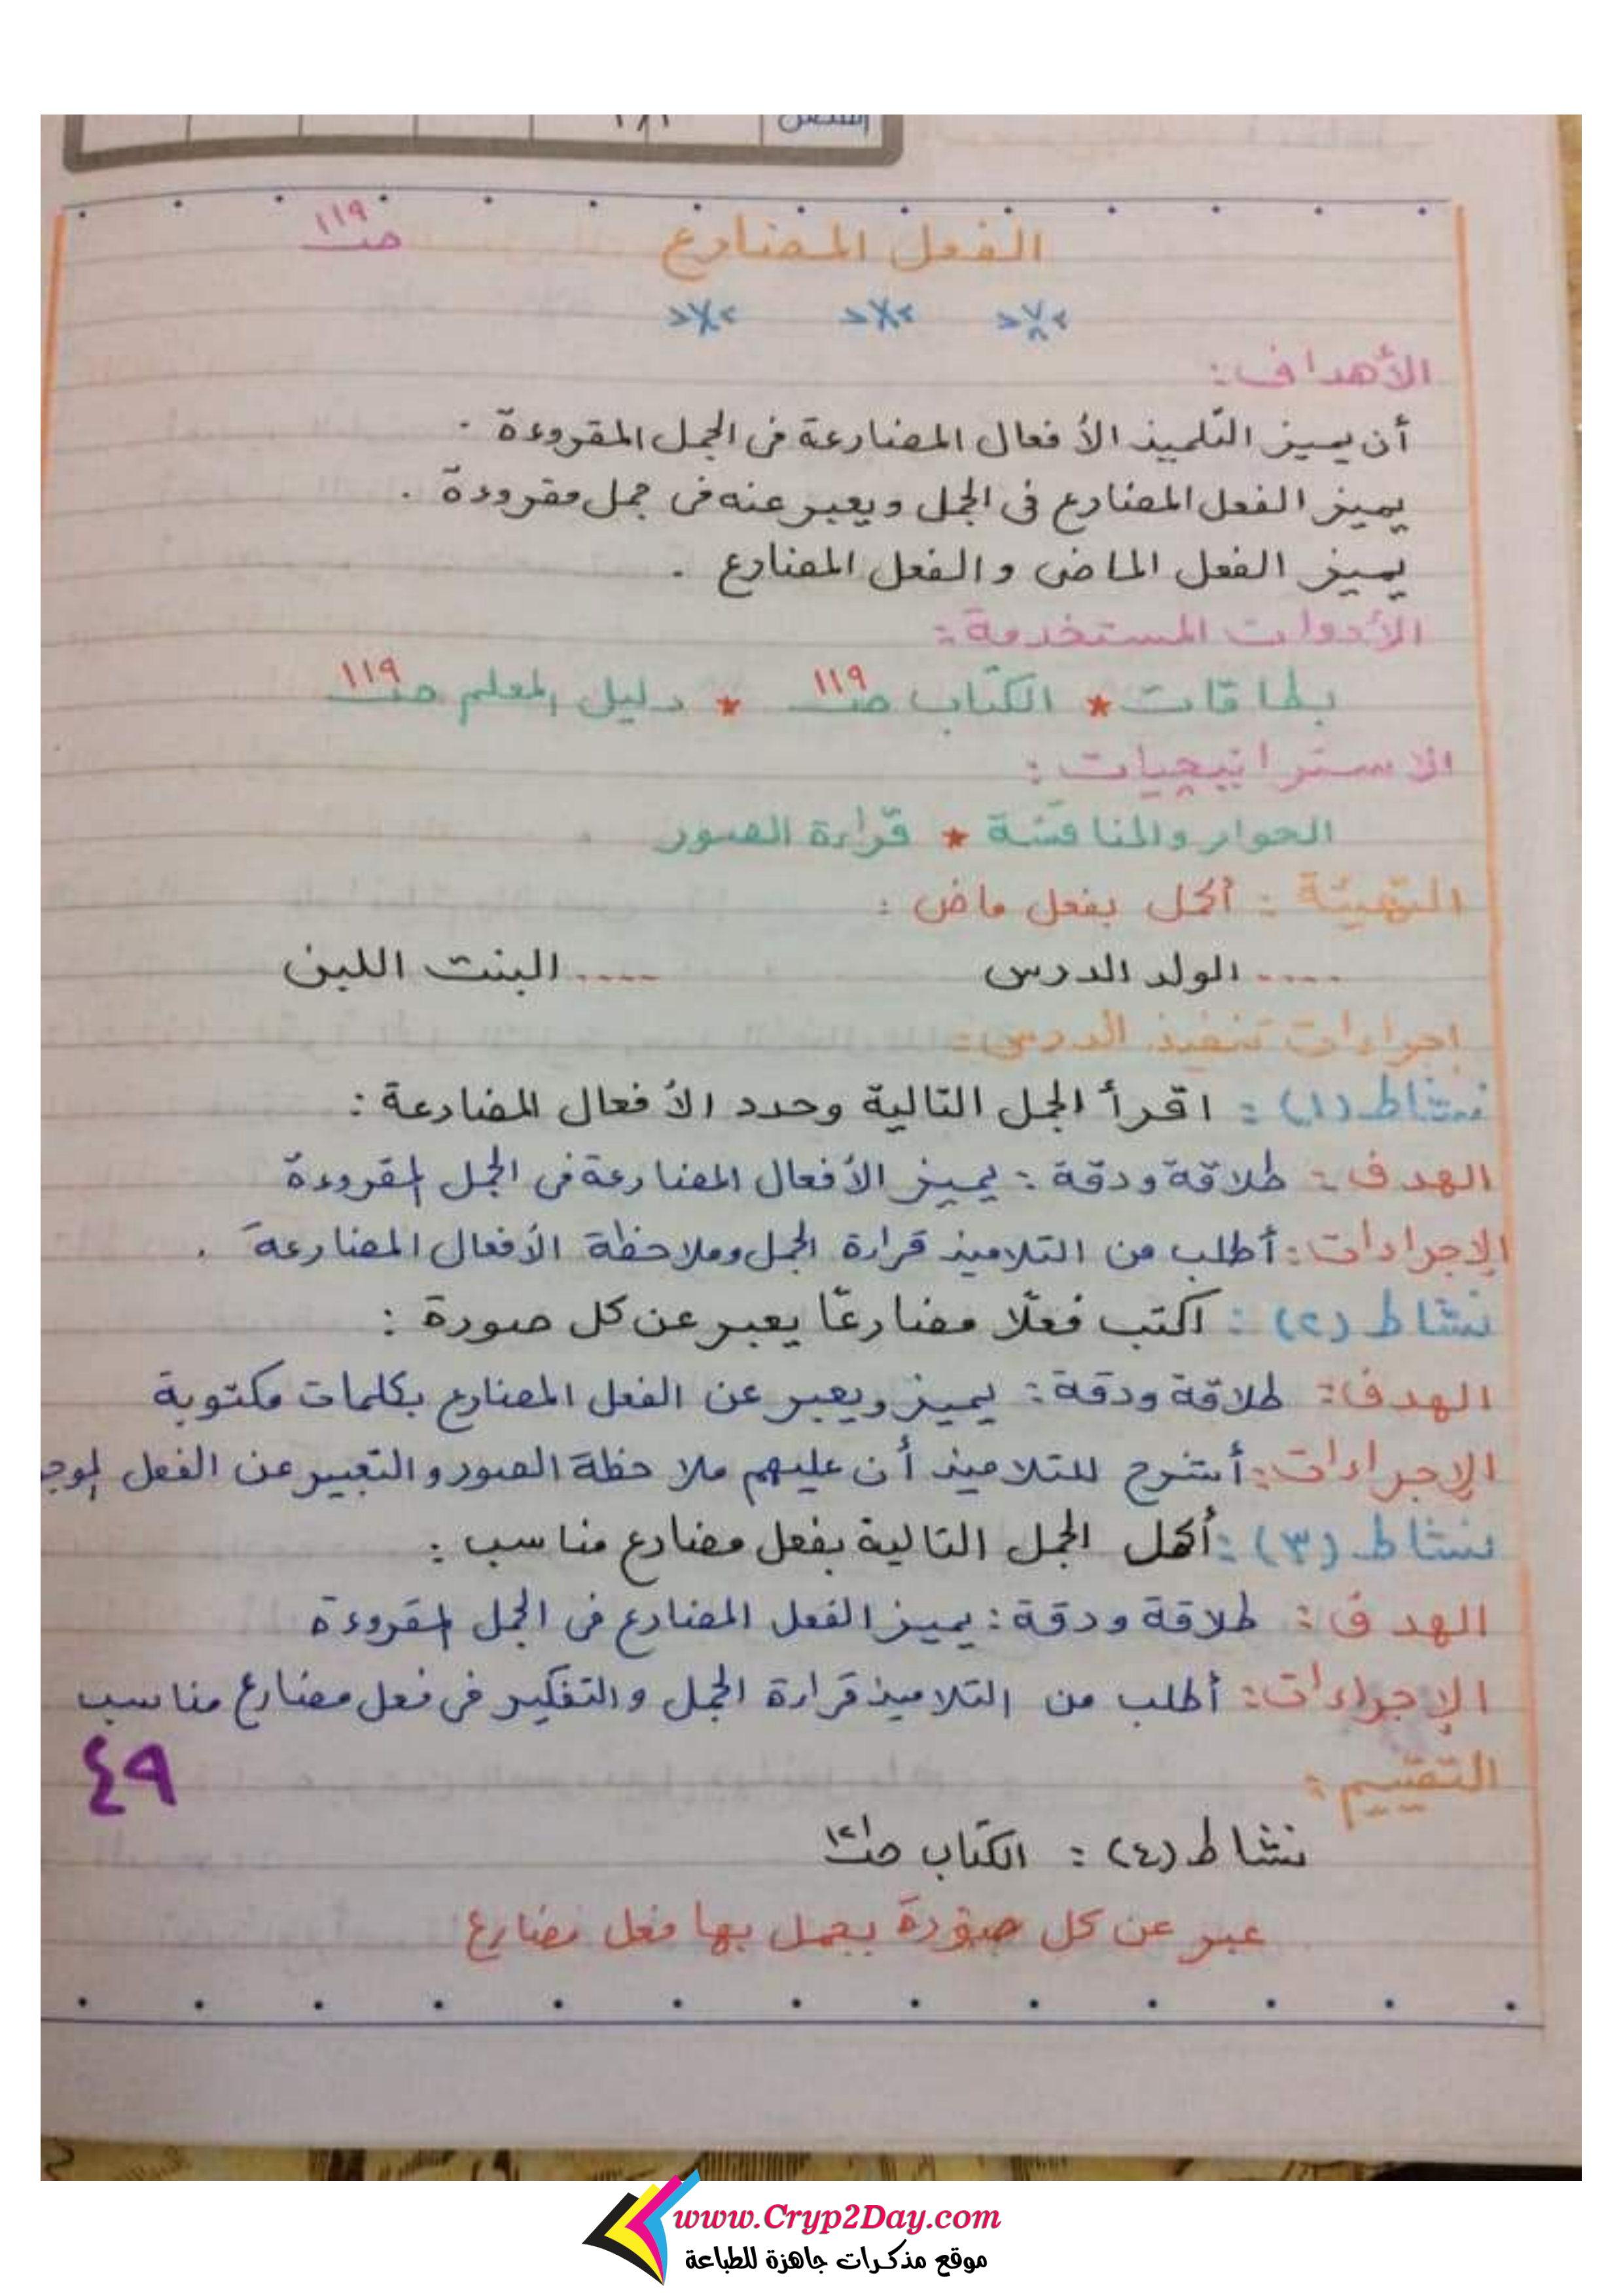 الفصل ١/٢
الفعل المضارع صـ ١١٩
الأهداف:
أن يميز التلميذ الأفعال المضارعة فى الجمل المقروءة .
يميز الفعل المضارع فى الجمل ويعبر عنه فى جمل مقروءة .
يميز الفعل الماضى والفعل المضارع .
الأدوات المستخدمة :
بطاقات * الكتاب صـ ١١٩ * دليل المعلم صـ ١١٩
الاستراتيجيات :
الحوار والمناقشة * قراءة الصور
التهيئة : أكمل بفعل ماض :
..... الولد الدرس ..... البنت اللبن
إجراءات تنفيذ الدرس :
نشاط (١) : اقرأ الجمل التالية وحدد الأفعال المضارعة :
الهدف : طلاقة ودقة : يميز الأفعال المضارعة فى الجمل المقروءة
الإجراءات : أطلب من التلاميذ قراءة الجمل وملاحظة الأفعال المضارعة .
نشاط (٢) : اكتب فعلًا مضارعًا يعبر عن كل صورة :
الهدف : طلاقة ودقة : يميز ويعبر عن الفعل المضارع بكلمات مكتوبة
الإجراءات : أشرح للتلاميذ أن عليهم ملاحظة الصور والتعبير عن الفعل
نشاط (٣) : أكمل الجمل التالية بفعل مضارع مناسب :
الهدف : طلاقة ودقة : يميز الفعل المضارع فى الجمل المقروءة
الإجراءات : أطلب من التلاميذ قراءة الجمل والتفكير فى فعل مضارع مناسب
التقييم :
٤٩
نشاط (٤) : الكتاب صـ ١٢١
عبر عن كل صورة بجمل بها فعل مضارع
www.Cryp2Day.com
موقع مذكرات جاهزة للطباعة